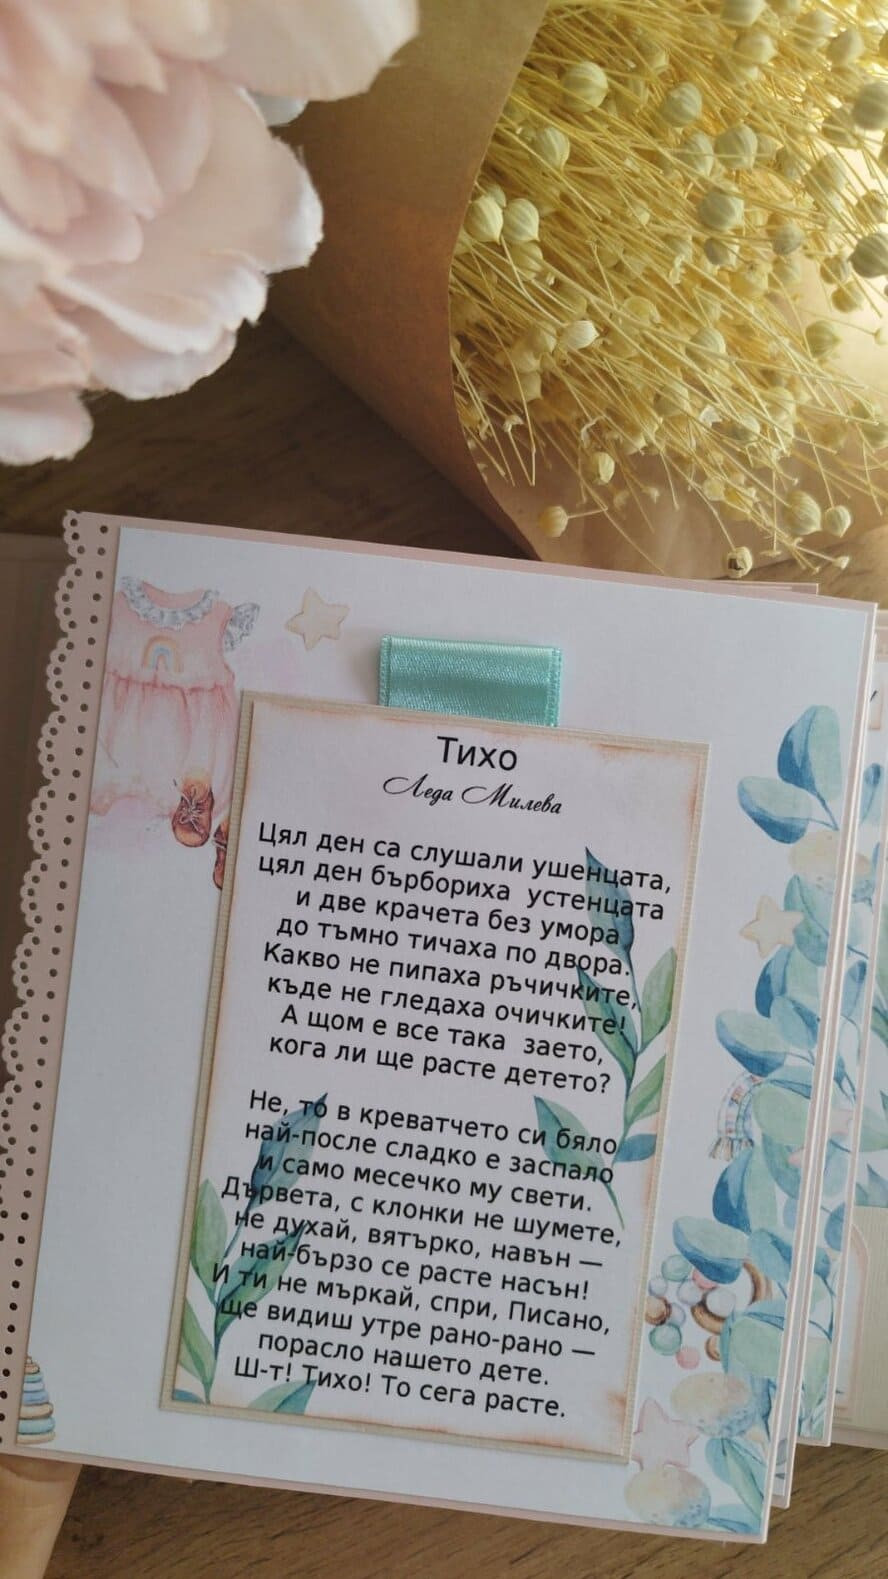 Тихо
Леда Милева
Цял ден са слушали ушенцата,
цял ден бърбориха устенцата
и две крачета без умора
до тъмно тичаха по двора.
Какво не пипаха ръчичките,
къде не гледаха очичките!
А щом е все така заето,
кога ли ще расте детето?
Не, то в креватчето си бяло
най-после сладко е заспало
и само месечко му свети.
Дървета, с клонки не шумете,
не духай, вятърко, навън —
най-бързо се расте насън!
И ти не мъркай, спри, Писано,
ще видиш утре рано-рано —
порасло нашето дете.
Ш-т! Тихо! То сега расте.